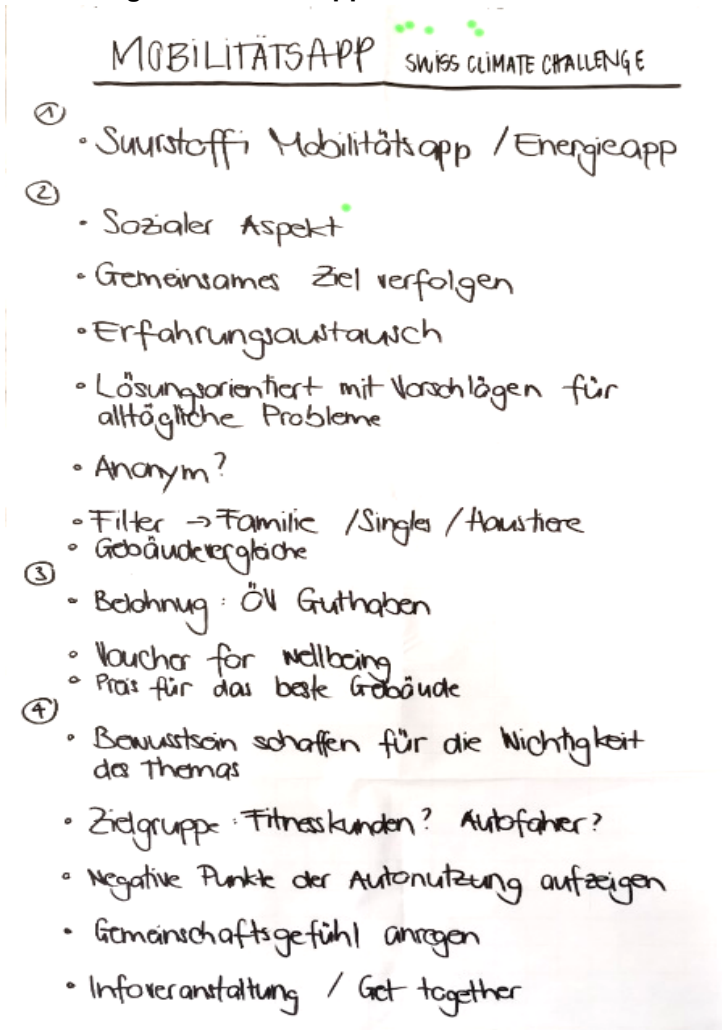 MOBILITÄTSAPP SWISS CLIMATE CHALLENGE
①
• Suurstoffi Mobilitätsapp / Energieapp
②
• Sozialer Aspekt
• Gemeinsames Ziel verfolgen
• Erfahrungsaustausch
• Lösungsorientiert mit Vorschlägen für
alltägliche Probleme
• Anonym?
• Filter → Familie / Singles / Haustiere
• Gebäudevergleiche
③
• Belohnug : ÖV Guthaben
• Voucher for wellbeing
• Preis für das beste Gebäude
④
• Bewusstsein schaffen für die Wichtigkeit
des Themas
• Zielgruppe : Fitnesskunden? Autofahrer?
• Negative Punkte der Autonutzung aufzeigen
• Gemeinschaftsgefühl anregen
• Infoveranstaltung / Get together